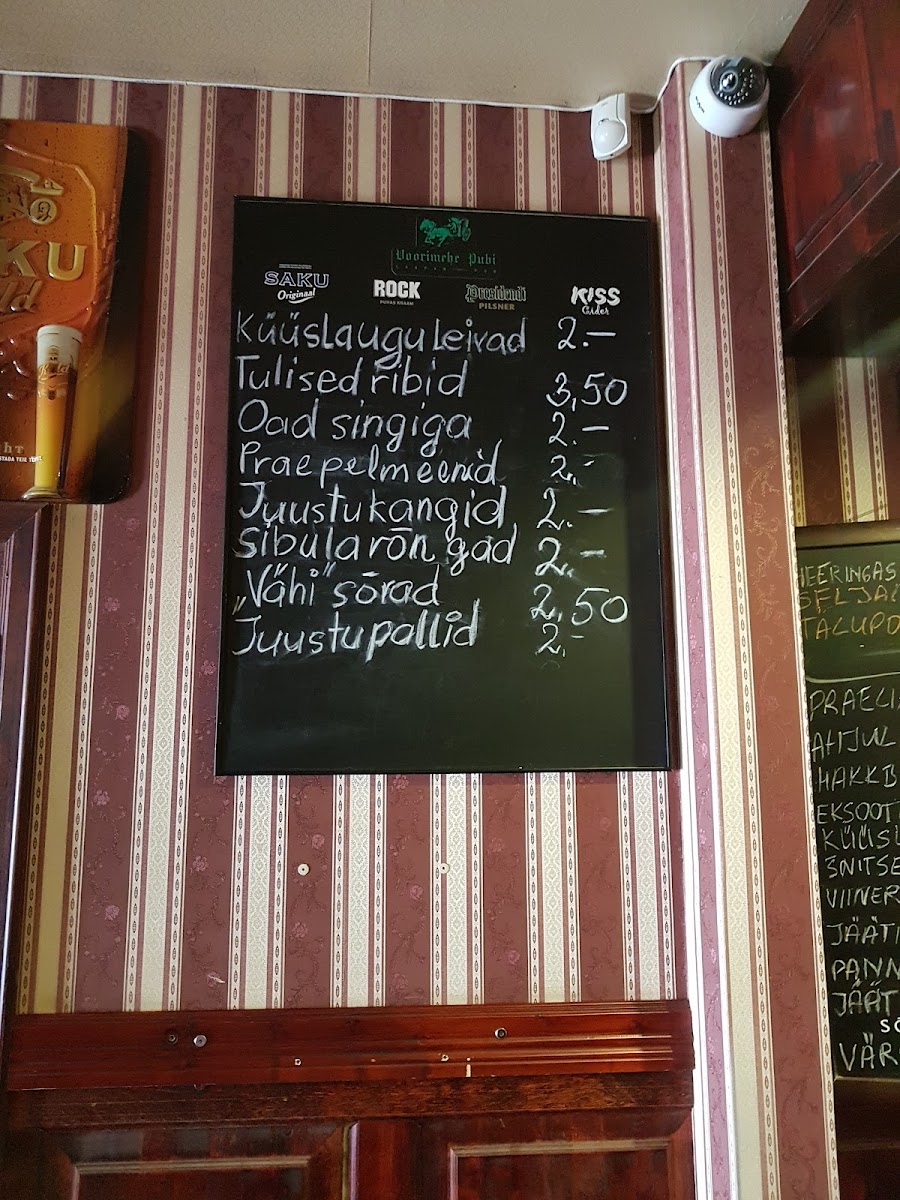 KU
Voorimehe Pubi
SAKU
Originaal
ROCK
Presidendi
PILSNER
KISS
Cider
Küüslauguleivad 2.-
Tulised ribid 3,50
Oad singiga 2.-
Praepelmeenid 2.-
Juustukangid 2.-
Sibularõngad 2.-
„Vähi" sõrad 2,50
Juustupallid 2.-
HEERINGAS
SELJA
TALUPO
PRAELI
AHJUL
HAKKB
EKSOOT
KÜÜSL
ŠNITSE
VIINER
JÄÄT
PANN
JÄÄT
VÄR